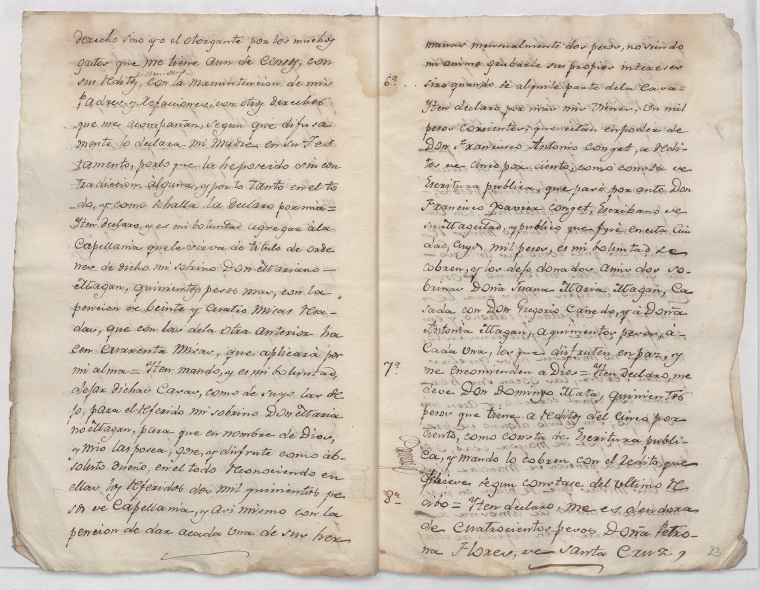 derecho sino yo el otorgante por los muchos
gastos que me tiene aun de Censos, con
sus reditos, con la manuntencion de mis
Padres, y refacciones, con otros derechos
que me acompañan, segun que difusa-
mente lo declara mi Madre en su Tes-
tamento, por lo que la he poseido sin con-
tradicion alguna, y por lo tanto en el to-
do, y como se halla la declaro por mia =
Iten declaro, y es mi boluntad agregar à la
Capellania que le sirva de titulo de orde-
nes de dicho mi sobrino Don Mariano
Magan, quinientos pesos mas, con la
pencion de Veinte y Cuatro Misas reza-
das, que con las de la otra anterior ha-
cen Cuarenta Misas, que aplicarà por
mi alma = Iten mando, y es mi boluntad,
dejar dichas Casas, como de suyo las de-
jo, para el referido mi sobrino Don Maria-
no Magan, para que en nombre de Dios,
y mio las posea, goze, y disfrute como ab-
soluto Dueño, en el todo reconociendo en
ellas, los referidos dos mil quinientos pe-
sos de Capellania, y asi mismo con la
pencion de dar a cada una de sus her-
manas mensualmente dos pesos, no siendo
mi animo grabarle sus propios intereses
sino quando se alquile parte de la Casa =
6ª Iten declaro, por mas mis vienes, Un mil
pesos corrientes, que estan en poder de
Don Francisco Antonio Conget, a redi-
tos de Cinco por ciento, como consta de
Escritura publica, que pasó por ante Don
Francisco Xavier Conget, Escribano de
su Magestad, y publico que fue en esta Ciu-
dad, Cuyos mil pesos, es mi boluntad se
cobren, y los dejo donados a mis dos so-
brinas Doña Juana Maria Magan, Ca-
sada con Don Gregorio Canedo, y à Doña
Antonia Magan, a quinientos pesos, à
Cada una, los que disfruten en paz, y
me encomienden a Dios = Iten declaro, me
7ª deve Don Domingo Mata, quinientos
pesos que tiene a reditos del Cinco por
ciento, como consta de Escritura publi-
ca, y mando lo cobren con el redito, que
deve segun constase del ultimo re-
8ª cibo = Iten declaro, me es deudora
de Cuatrocientos pesos Doña Petro-
na Flores, de Santa Cruz,
23